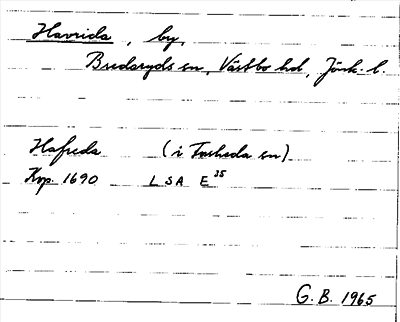 Havrida, by,
Bredaryds sn, Västbo hd, Jönk. l.
Hafreda (i Forsheda sn)
Kop. 1690 L S A E 35
G. B. 1965